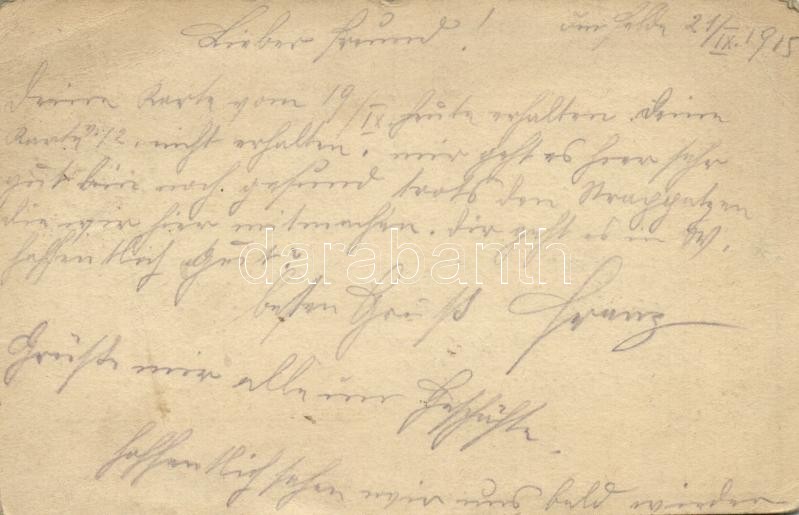 im Felde 21/IX. 1915
Lieber Freund!
Deine Karte vom 19/IX heute erhalten. Deine
Karte v. 12. nicht erhalten. mir geht es hier sehr
gut bin noch gesund trots den Strappatzen
die wir hier mitmachen. dir geht es in W.
hoffentlich gut?
besten Gruß Franz
Grüße mir alle im Geschäfte.
hoffentlich sehen wir uns bald wieder
darabanth